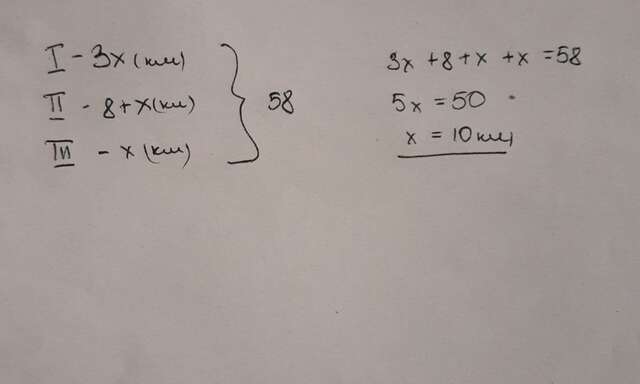 I - 3x (км)
II - 8+x(км)
III - x (км)
58
3x +8+x +x =58
5x = 50
x = 10 км